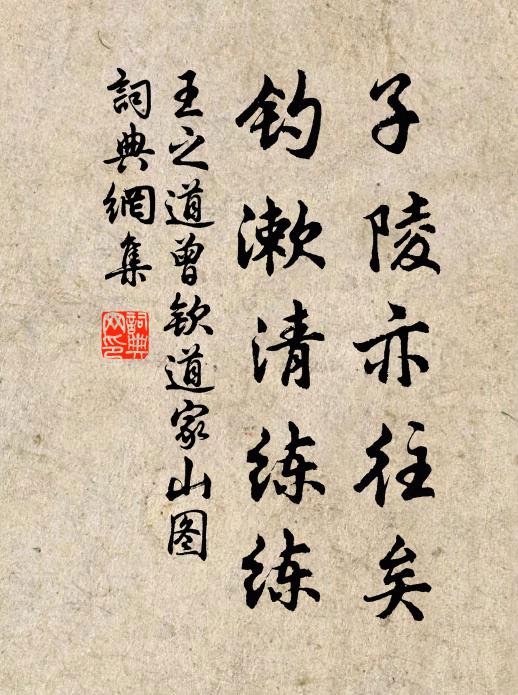 子陵亦往矣
钓漱清练练
王之道曾钦道家山图
詞典網集
詞典
网印